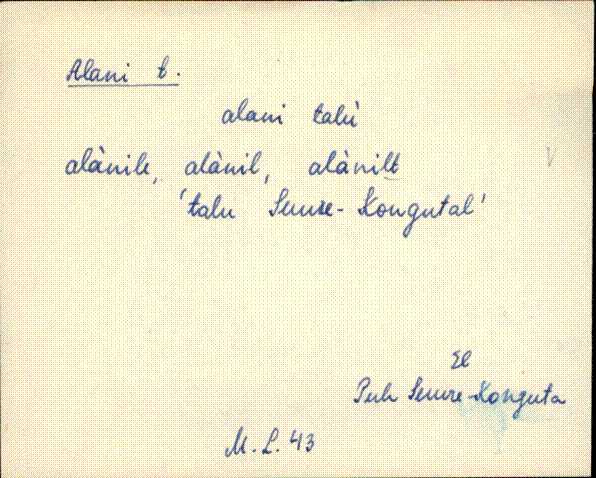 Alani t.
alani talù
alànile, alànil, alànilt
'talu Suure-Kongutal'
El
Puh Suure-Konguta
M. L. 43